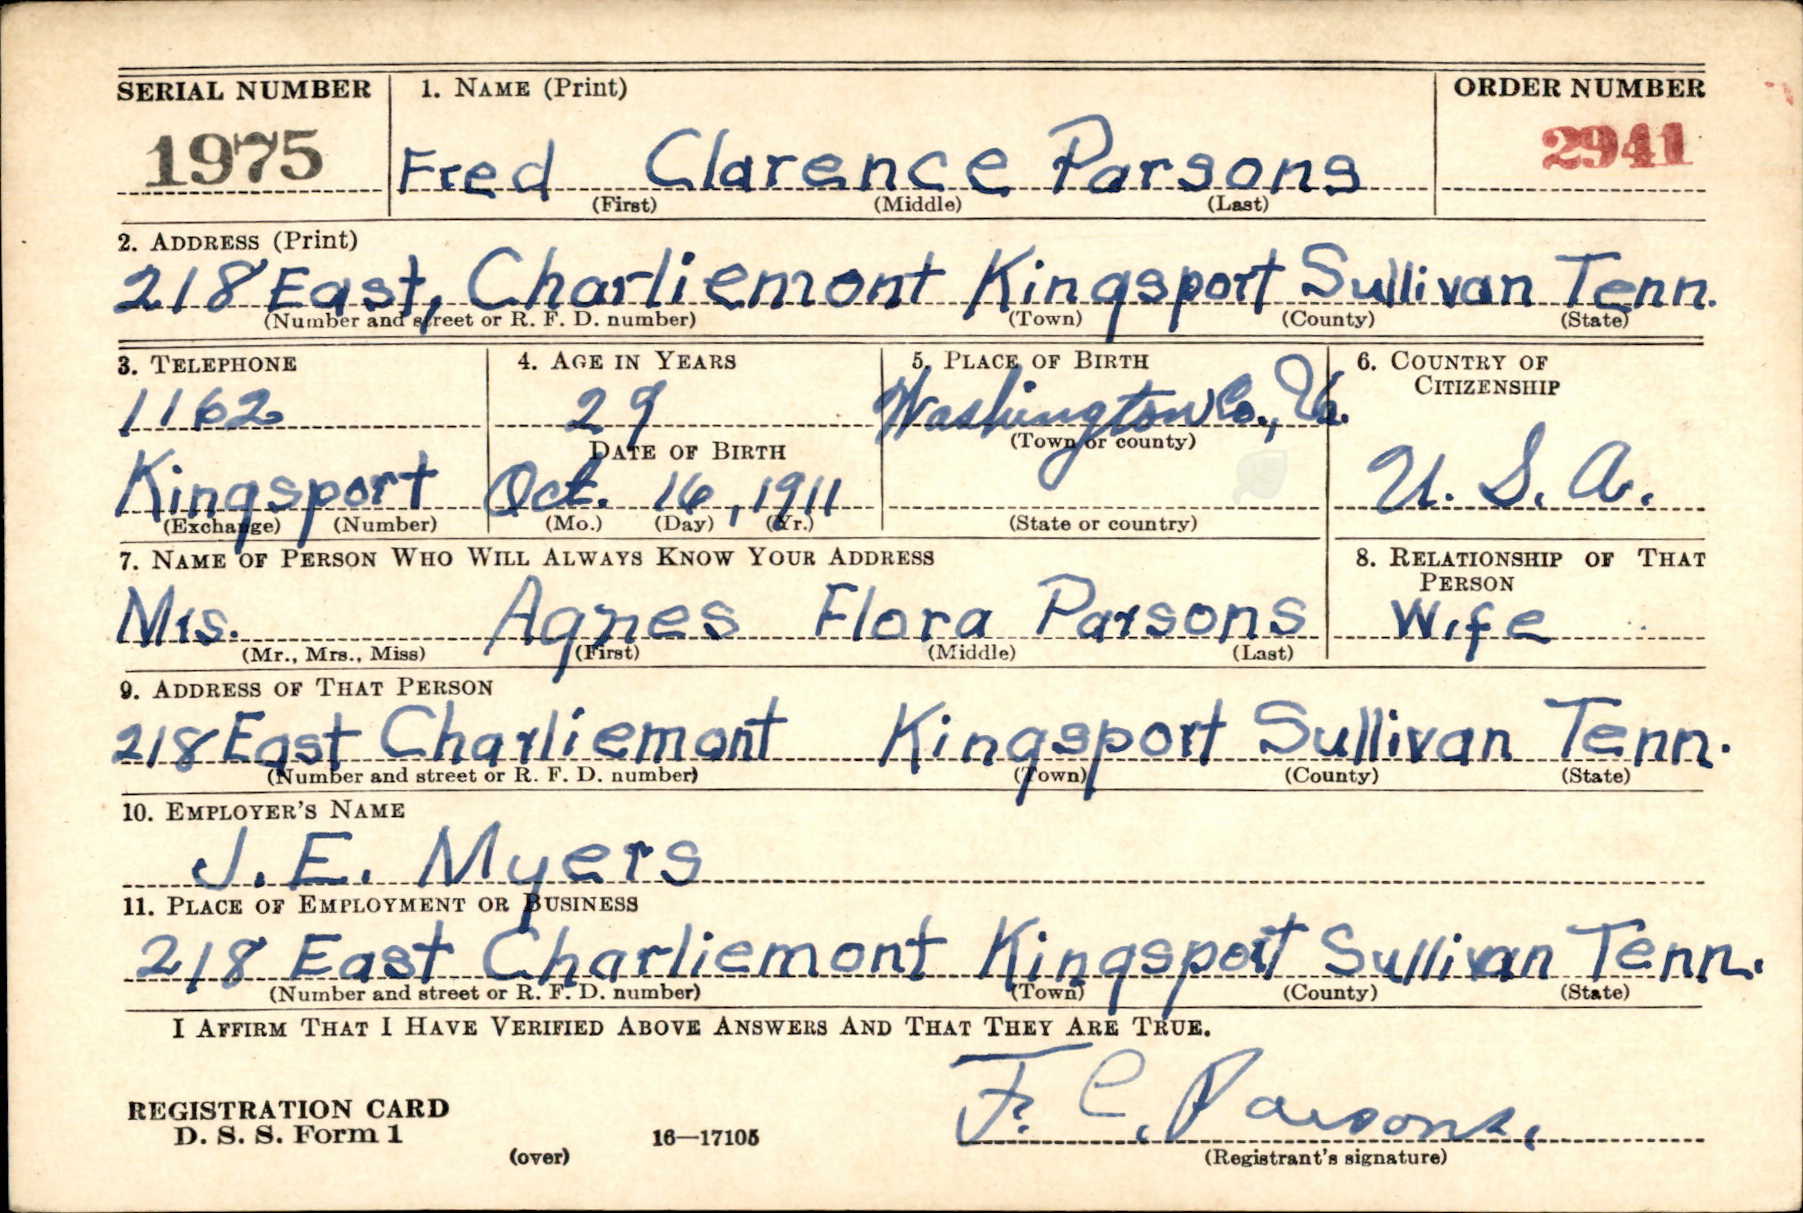 SERIAL NUMBER 1. NAME (Print) ORDER NUMBER
1975 Fred Clarence Parsons 2941
(First) (Middle) (Last)
2. ADDRESS (Print)
218 East, Charliemont Kingsport Sullivan Tenn.
(Number and street or R. F. D. number) (Town) (County) (State)
3. TELEPHONE 4. AGE IN YEARS 5. PLACE OF BIRTH 6. COUNTRY OF
CITIZENSHIP
1162 29 Washington Co., Va.
DATE OF BIRTH (Town or county)
Kingsport Oct. 16, 1911 U. S. A.
(Exchange) (Number) (Mo.) (Day) (Yr.) (State or country)
7. NAME OF PERSON WHO WILL ALWAYS KNOW YOUR ADDRESS 8. RELATIONSHIP OF THAT
PERSON
Mrs. Agnes Flora Parsons Wife
(Mr., Mrs., Miss) (First) (Middle) (Last)
9. ADDRESS OF THAT PERSON
218 East Charliemont Kingsport Sullivan Tenn.
(Number and street or R. F. D. number) (Town) (County) (State)
10. EMPLOYER'S NAME
J. E. Myers
11. PLACE OF EMPLOYMENT OR BUSINESS
218 East Charliemont Kingsport Sullivan Tenn.
(Number and street or R. F. D. number) (Town) (County) (State)
I AFFIRM THAT I HAVE VERIFIED ABOVE ANSWERS AND THAT THEY ARE TRUE.
F. C. Parsons.
REGISTRATION CARD
D. S. S. Form 1 16—17105
(over) (Registrant's signature)